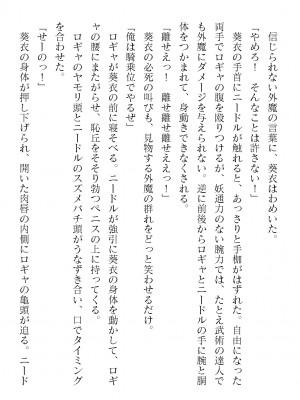 信じられない外魔の言葉に、葵衣はわめいた。
「やめろ！　そんなことは許さない！」
葵衣の手首にニードルが触れると、あっさりと手枷がはずれた。自由になった
両手でロギャの腹を殴りつけるが、妖通力のない腕力では、たとえ武術の達人で
も外魔にダメージを与えられない。逆に前後からロギャとニードルの手に腕と胴
体をつかまれて、身動きできなくされる。
「離せえっ！　離せ離せ離せえっ！」
葵衣の必死の叫びも、見物する外魔の群れをどっと笑わせるだけ。
「俺は騎乗位でやるぜ」
ロギャが葵衣の前に寝そべる。ニードルが強引に葵衣の身体を動かして、ロギ
ャの腰にまたがらせ、恥丘をそそり勃つペニスの上に持ってくる。
ロギャのヤモリ頭とニードルのスズメバチ頭がうなずき合い、口でタイミング
を合わせた。
「せーのっ！」
葵衣の身体が押し下げられ、開いた肉唇の内側にロギャの亀頭が迫る。ニード